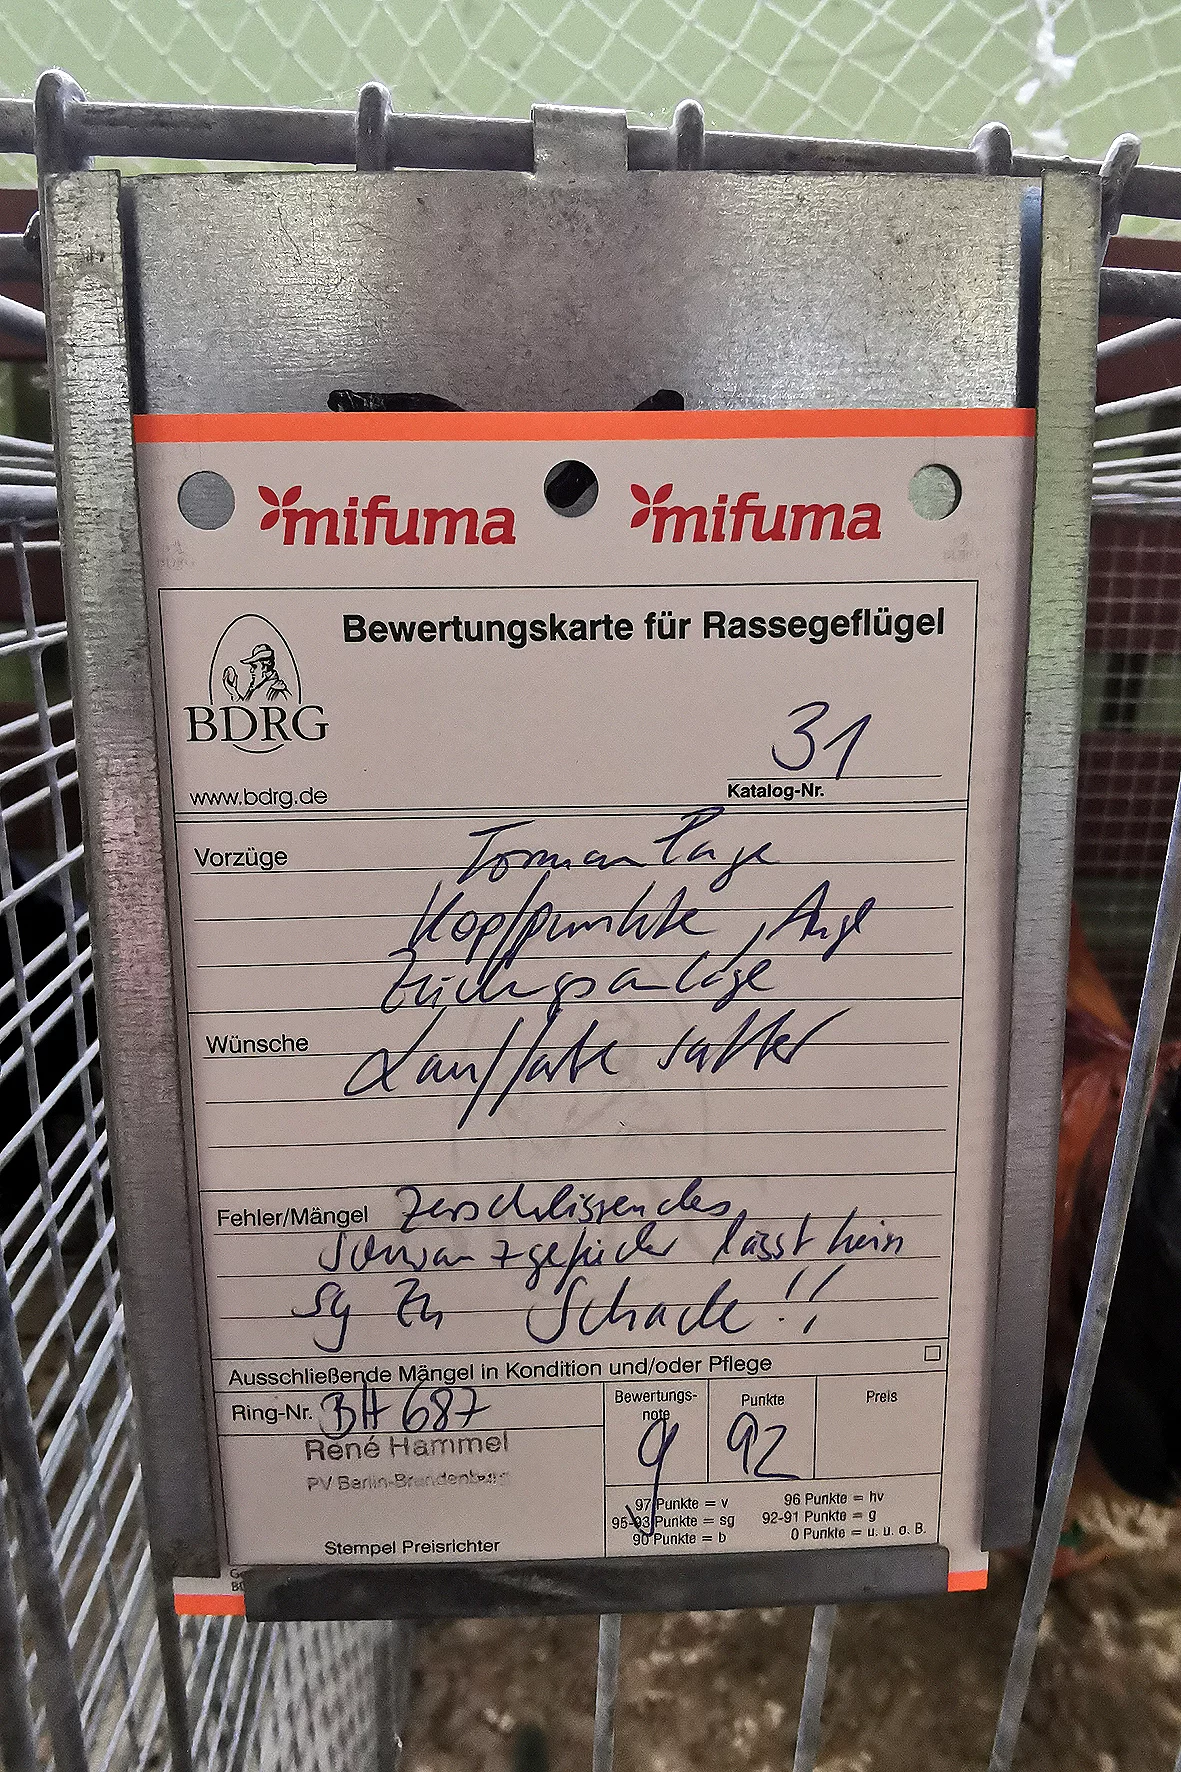 mifuma mifuma
Bewertungskarte für Rassegeflügel
BDRG
www.bdrg.de
31
Katalog-Nr.
Vorzüge Formanlage
Kopfpunkte, Auge
Zeichgsanlage
Wünsche Lauffarbe satter
Fehler/Mängel Zerschlissendes
Schwanzgefieder lässt kein
sg zu Schade!!
Ausschließende Mängel in Kondition und/oder Pflege
Ring-Nr. BH 687
Bewertungs-
note
g
Punkte
92
Preis
René Hammel
PV Berlin-Brandenburg
Stempel Preisrichter
97 Punkte = v 96 Punkte = hv
95-93 Punkte = sg 92-91 Punkte = g
90 Punkte = b 0 Punkte = u. u. o. B.